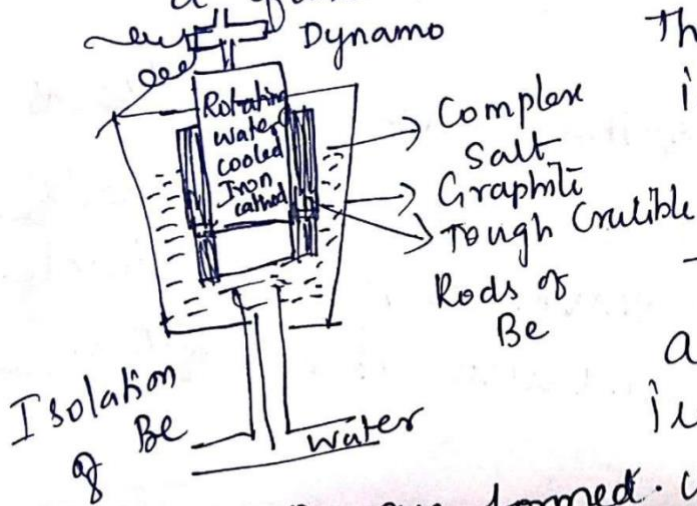 Dynamo
Rotating
water
cooled
Iron
cathod
Complex
Salt
Graphite
Tough Crulible
Rods of
Be
Isolation
of Be
water
Th
i
a
formed.